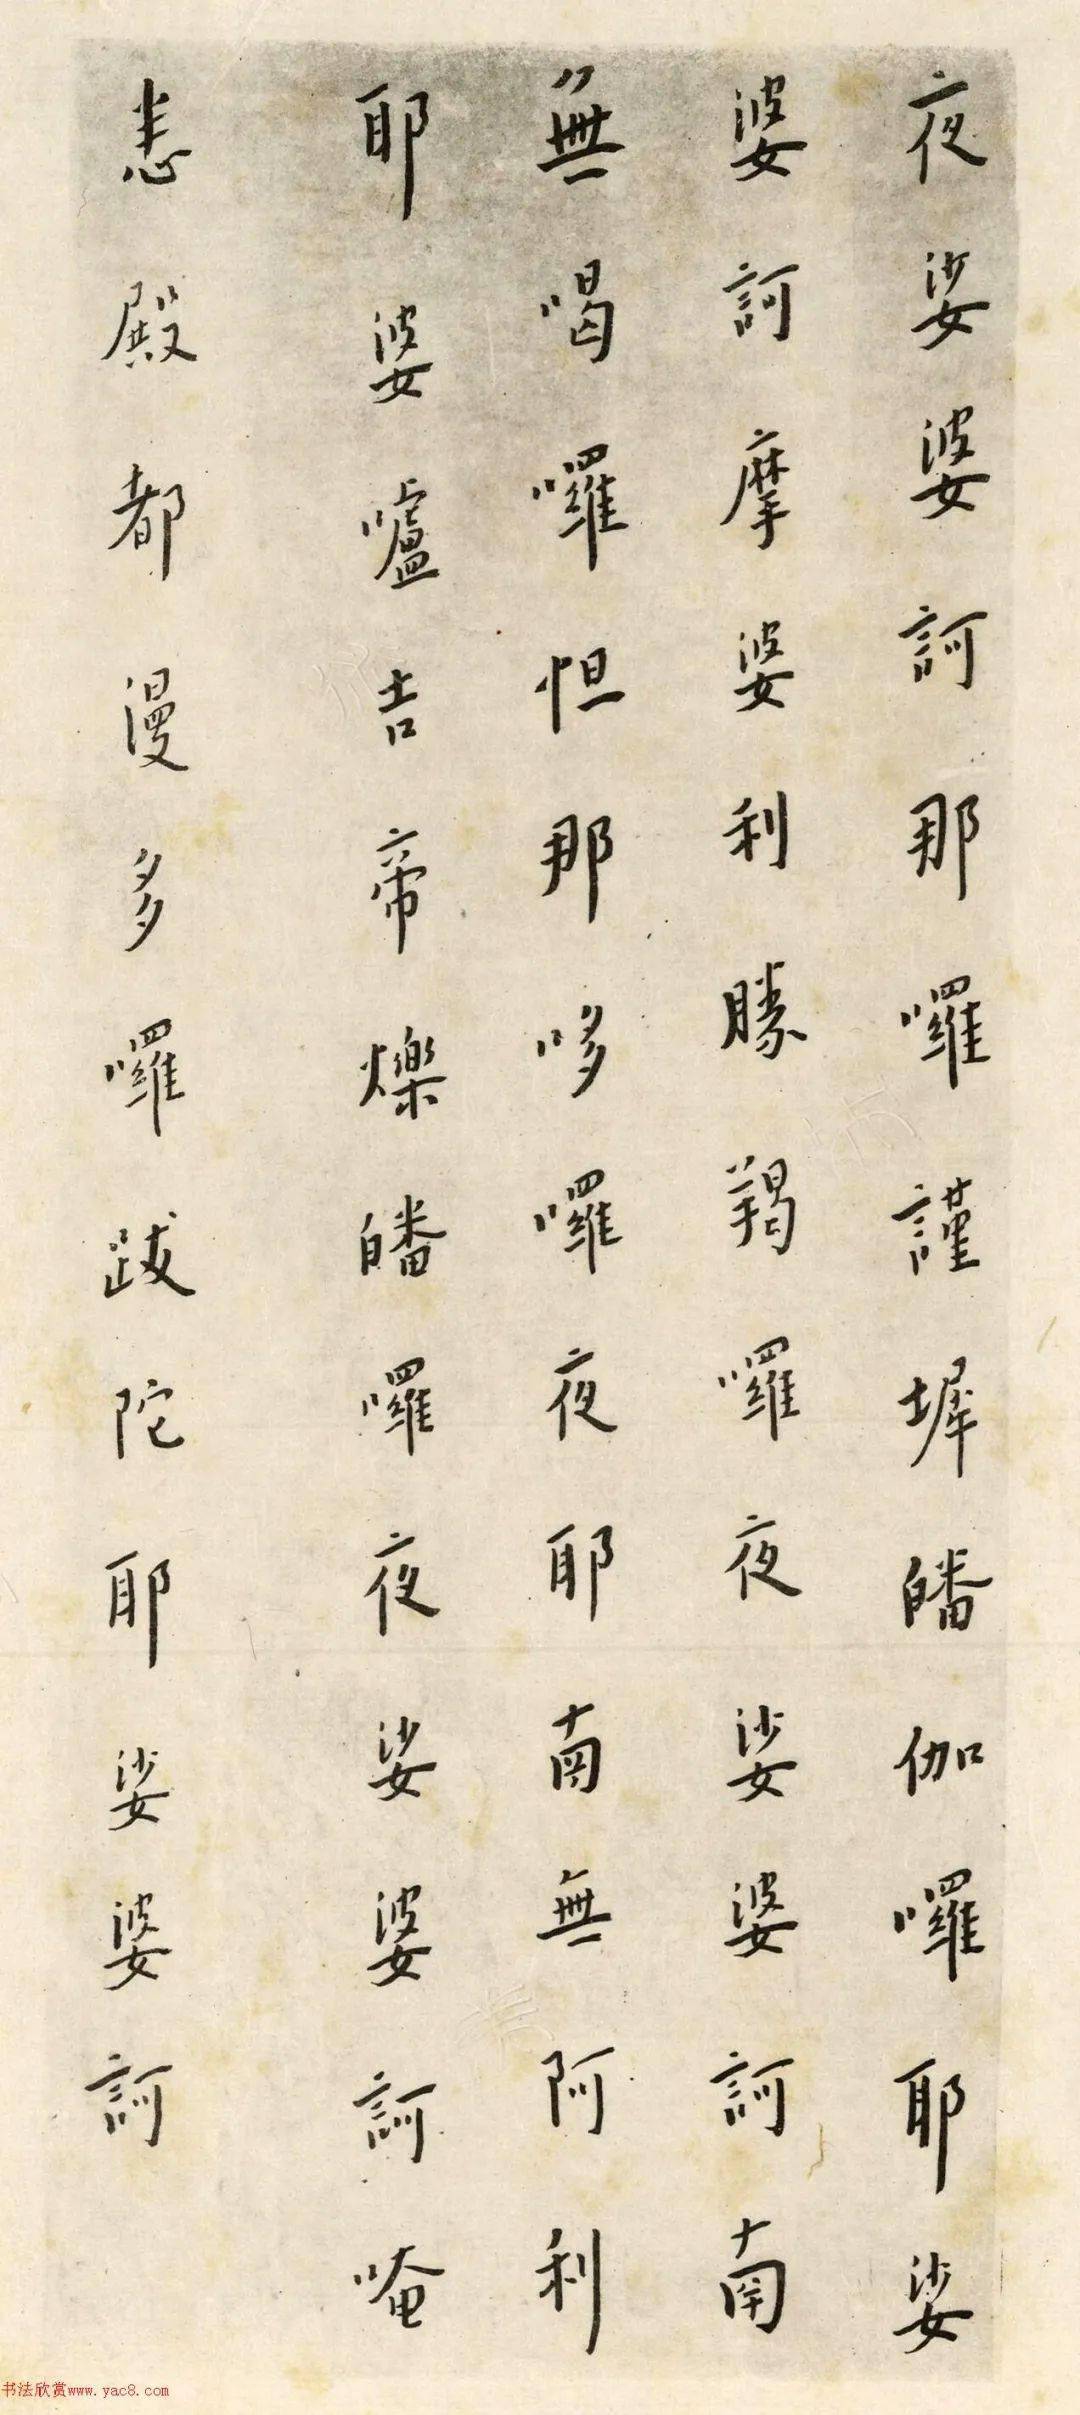 夜娑婆訶那囉謹墀皤伽囉耶娑
婆訶摩婆利勝羯囉夜娑婆訶南
無喝囉怛那哆囉夜耶南無阿利
耶婆嚧吉帝爍皤囉夜娑婆訶唵
悉殿都漫多囉跋陀耶娑婆訶
书法欣赏www.yac8.com